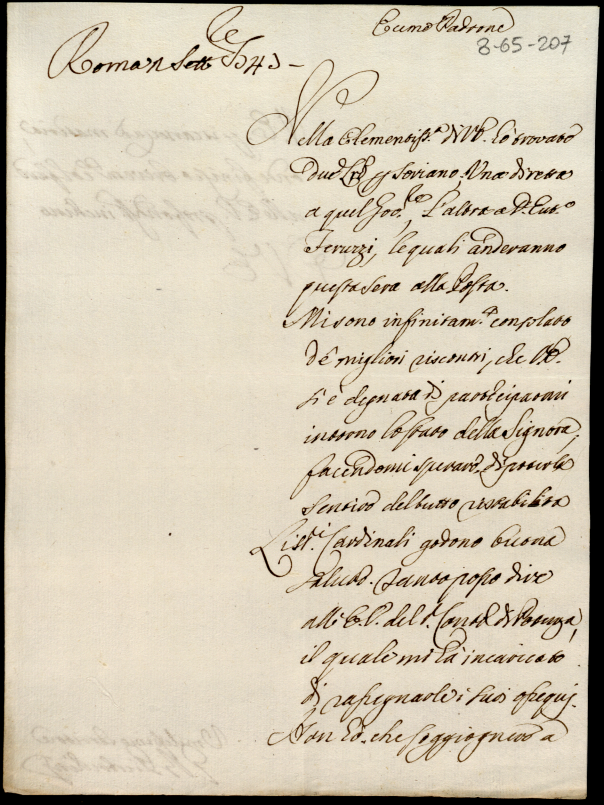 Eccmo Padrone
8-65-207
Roma
Nella Clementiss.a di V.E. hò trovato
due p Soriano, Una diretta
a quel Gov.re, l'altra a D. Eut.o
Feruzzi, le quali anderanno
questa sera alla Posta.
Mi sono infinitam.te consolato
de migliori riscontri, che V.E.
si è degnata di participarmi
intorno lo stato della Signora,
facendomi sperare, di poterla
sentire del tutto ristabilita
Li SS.ri Cardinali godono buona
salute. Tanto posso dire
all' E.V. del S.r di
il quale mi hà incaricato
di rassegnarle i suoi ossequj.
Non hò che soggiognere a